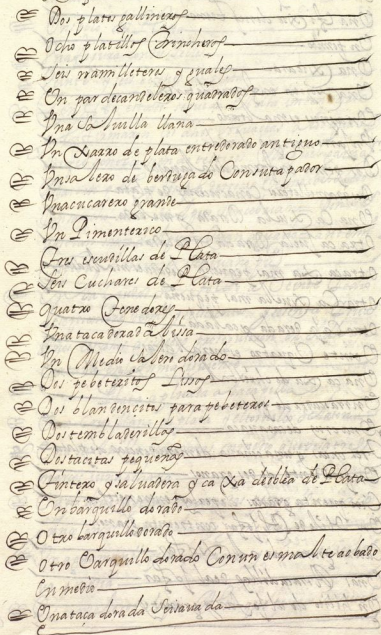 Dos platos gallineros
Ocho platillos trincheros
Seis rramilleteres yguales
Un par de candeleros quadrados
Una salvilla llana
Un Xarro de plata entredorado antiguo
Un salero de verdugado Con su tapador
Una açucarero grande
Un Pimenterico
Tres escudillas de Plata
Seis Cuchares de Plata
quatro tenedores
Una taça dorada lissa
Un Medio salero dorado
Dos pebeteritos Lissos
Dos blandoncitos para pebeteros
Dos tembladerillas
Dos tacitas pequeñas
Tintero y salvadera y caxa de obleas de Plata
Un barquillo dorado
Otro barquillo dorado
Otro Varquillo dorado Con un esmalte aobado
En medio
Una taça dorada Seisavada